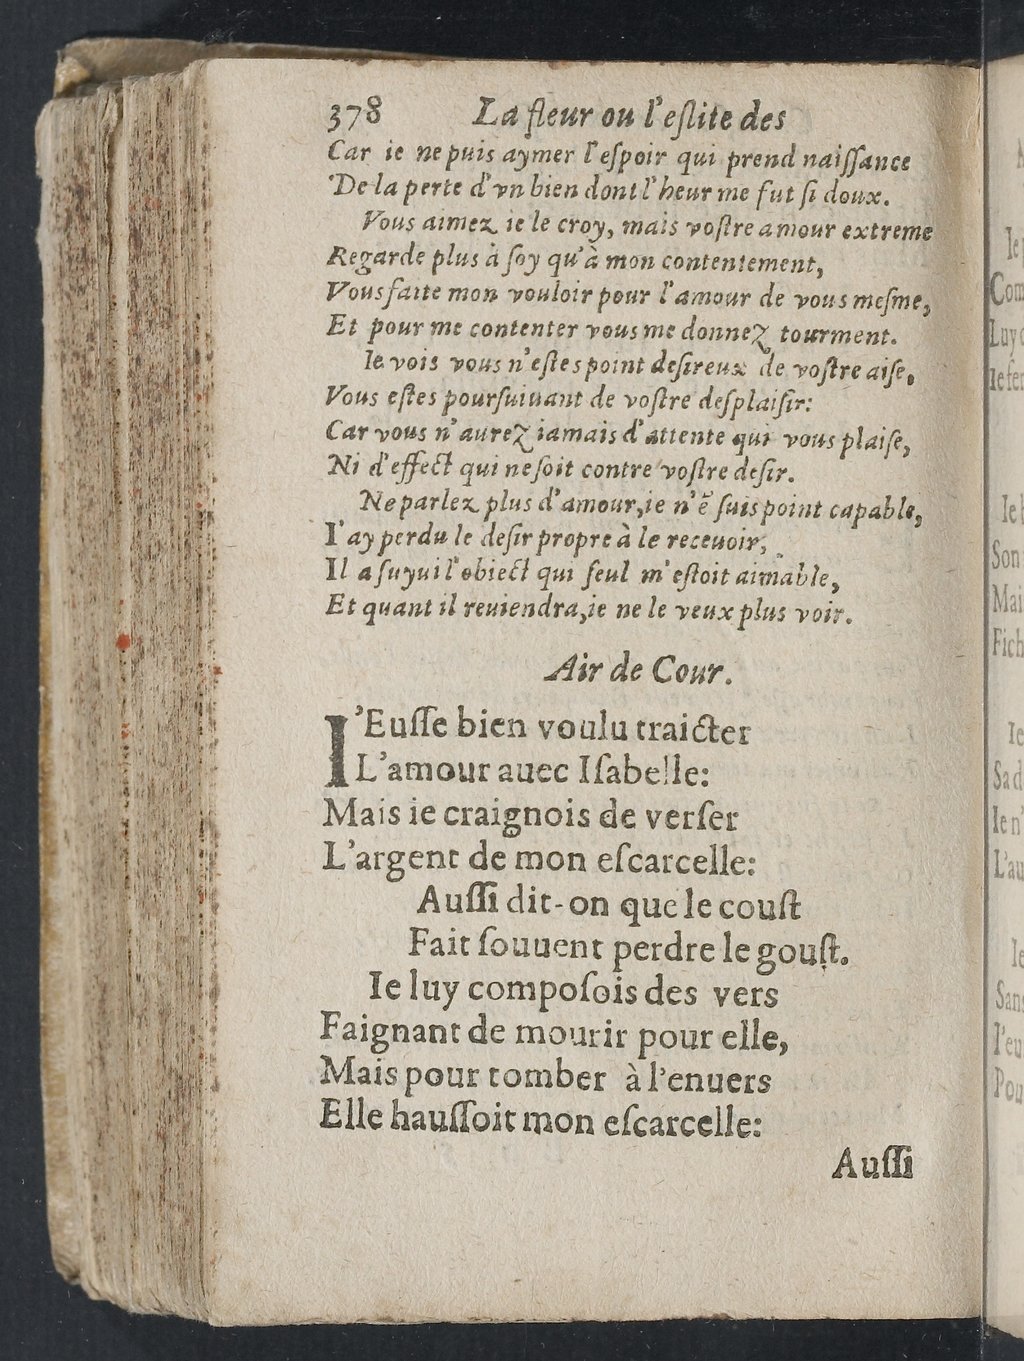 378 La fleur ou l'eſlite des
Car ie ne puis aymer l'eſpoir qui prend naiſſance
De la perte d'vn bien dont l'heur me fut ſi doux.
Vous aimez ie le croy, mais voſtre amour extreme
Regarde plus à ſoy qu'à mon contentement,
Vous faite mon vouloir pour l'amour de vous meſme,
Et pour me contenter vous me donnez tourment.
Ie vois vous n'eſtes point deſireux de voſtre aiſe,
Vous eſtes pourſuiuant de voſtre deſplaiſir:
Car vous n'aurez iamais d'attente qui vous plaiſe,
Ni d'effect qui ne ſoit contre voſtre deſir.
Ne parlez plus d'amour, ie n'ẽ ſuis point capable,
I'ay perdu le deſir propre à le receuoir,
Il a ſuyui l'obiect qui ſeul m'eſtoit aimable,
Et quant il reuiendra, ie ne le veux plus voir.
Air de Cour.
I'Euſſe bien voulu traicter
L'amour auec Iſabelle:
Mais ie craignois de verſer
L'argent de mon eſcarcelle:
Auſſi dit-on que le couſt
Fait ſouuent perdre le gouſt.
Ie luy compoſois des vers
Faignant de mourir pour elle,
Mais pour tomber à l'enuers
Elle hauſſoit mon eſcarcelle:
Auſſi
Ie
Com
Luy
Ie fer
Ie
Son
Mai
Fich
Ie
Sa d
Ie n'
L'au
Ie
Sans
I'eu
Pou